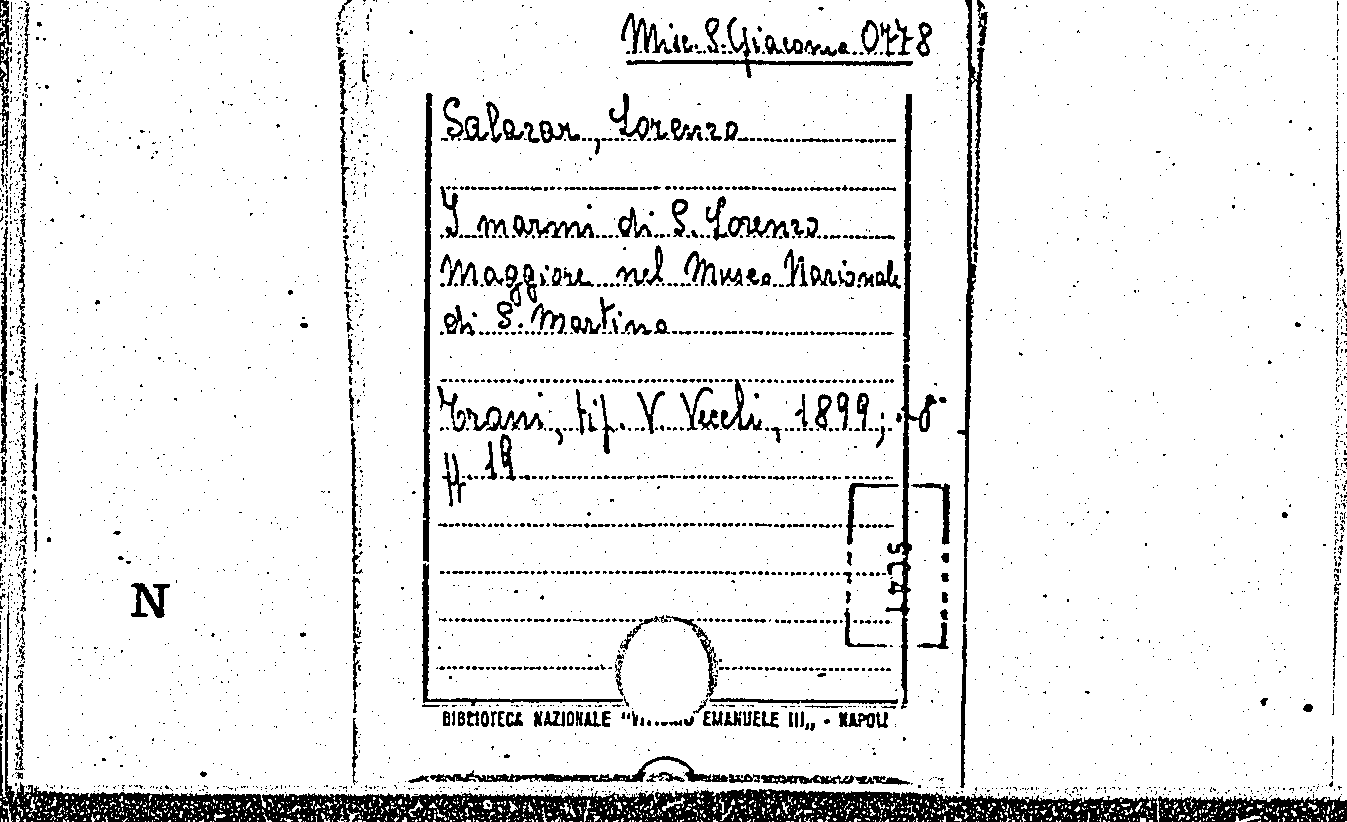 Misc. S. Giacomo 0778
Salazar, Lorenzo
I marmi di S. Lorenzo
Maggiore nel Museo Nazionale
di S. Martino
Trani, tip. V. Vecchi, 1899; 8°
pp. 19
N
BIBLIOTECA NAZIONALE "VITTORIO EMANUELE III„ - NAPOLI